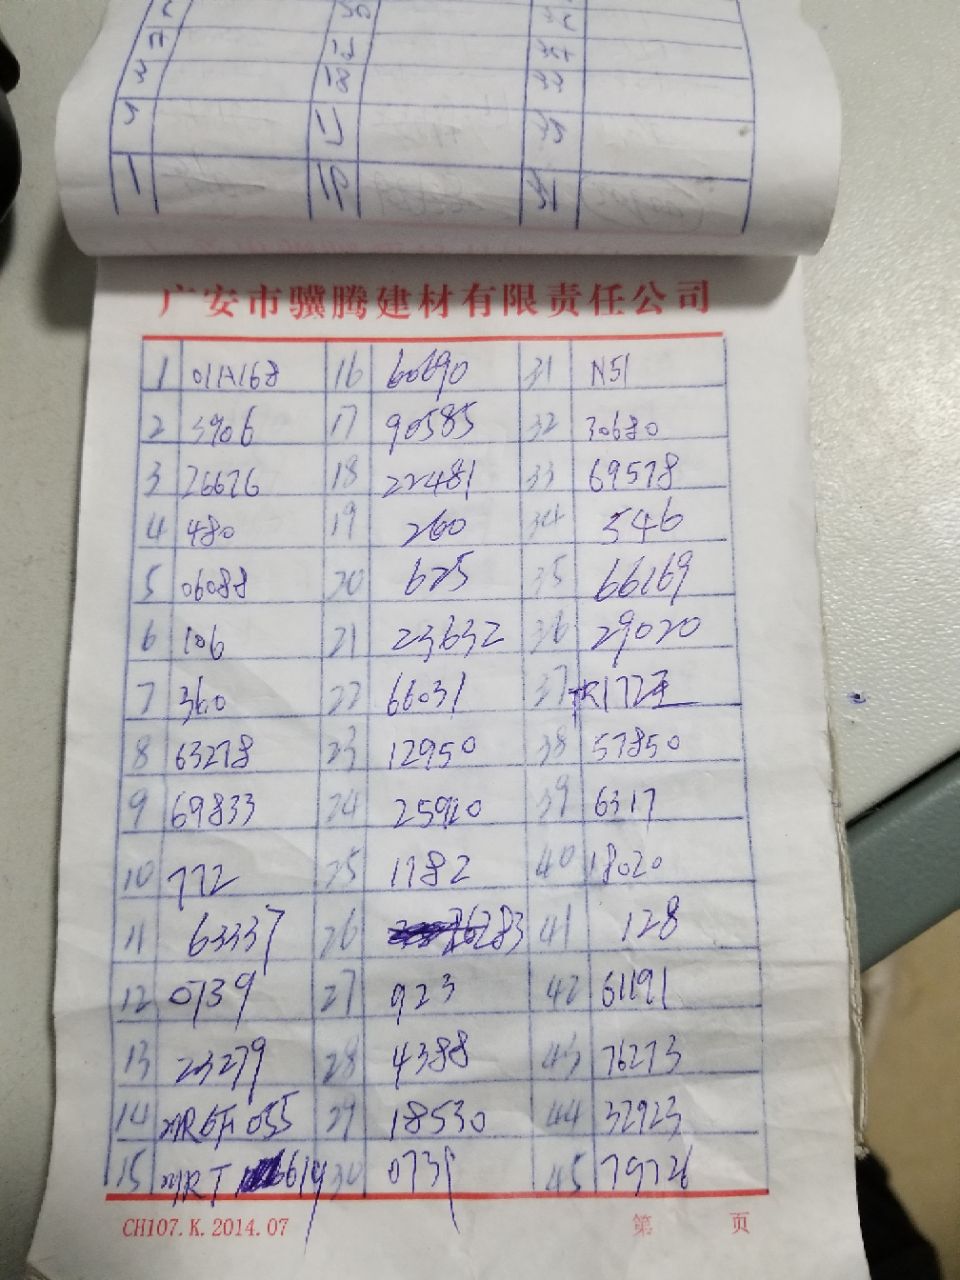 广安市骥腾建材有限责任公司
1 01A168 16 60690 31 N51
2 3906 17 90585 32 30680
3 26676 18 22481 33 69578
4 480 19 260 34 546
5 06088 20 625 35 66169
6 106 21 23632 36 29020
7 360 22 66031 37
8 63278 23 12950 38 57850
9 69833 24 25910 39 6317
10 772 25 1782 40 18020
11 63337 26 26283 41 128
12 0739 27 923 42 61191
13 23279 28 4388 43 76273
14 055 29 18530 44 32923
15 6619 30 0739 45 79726
CH107.K.2014.07 第 页